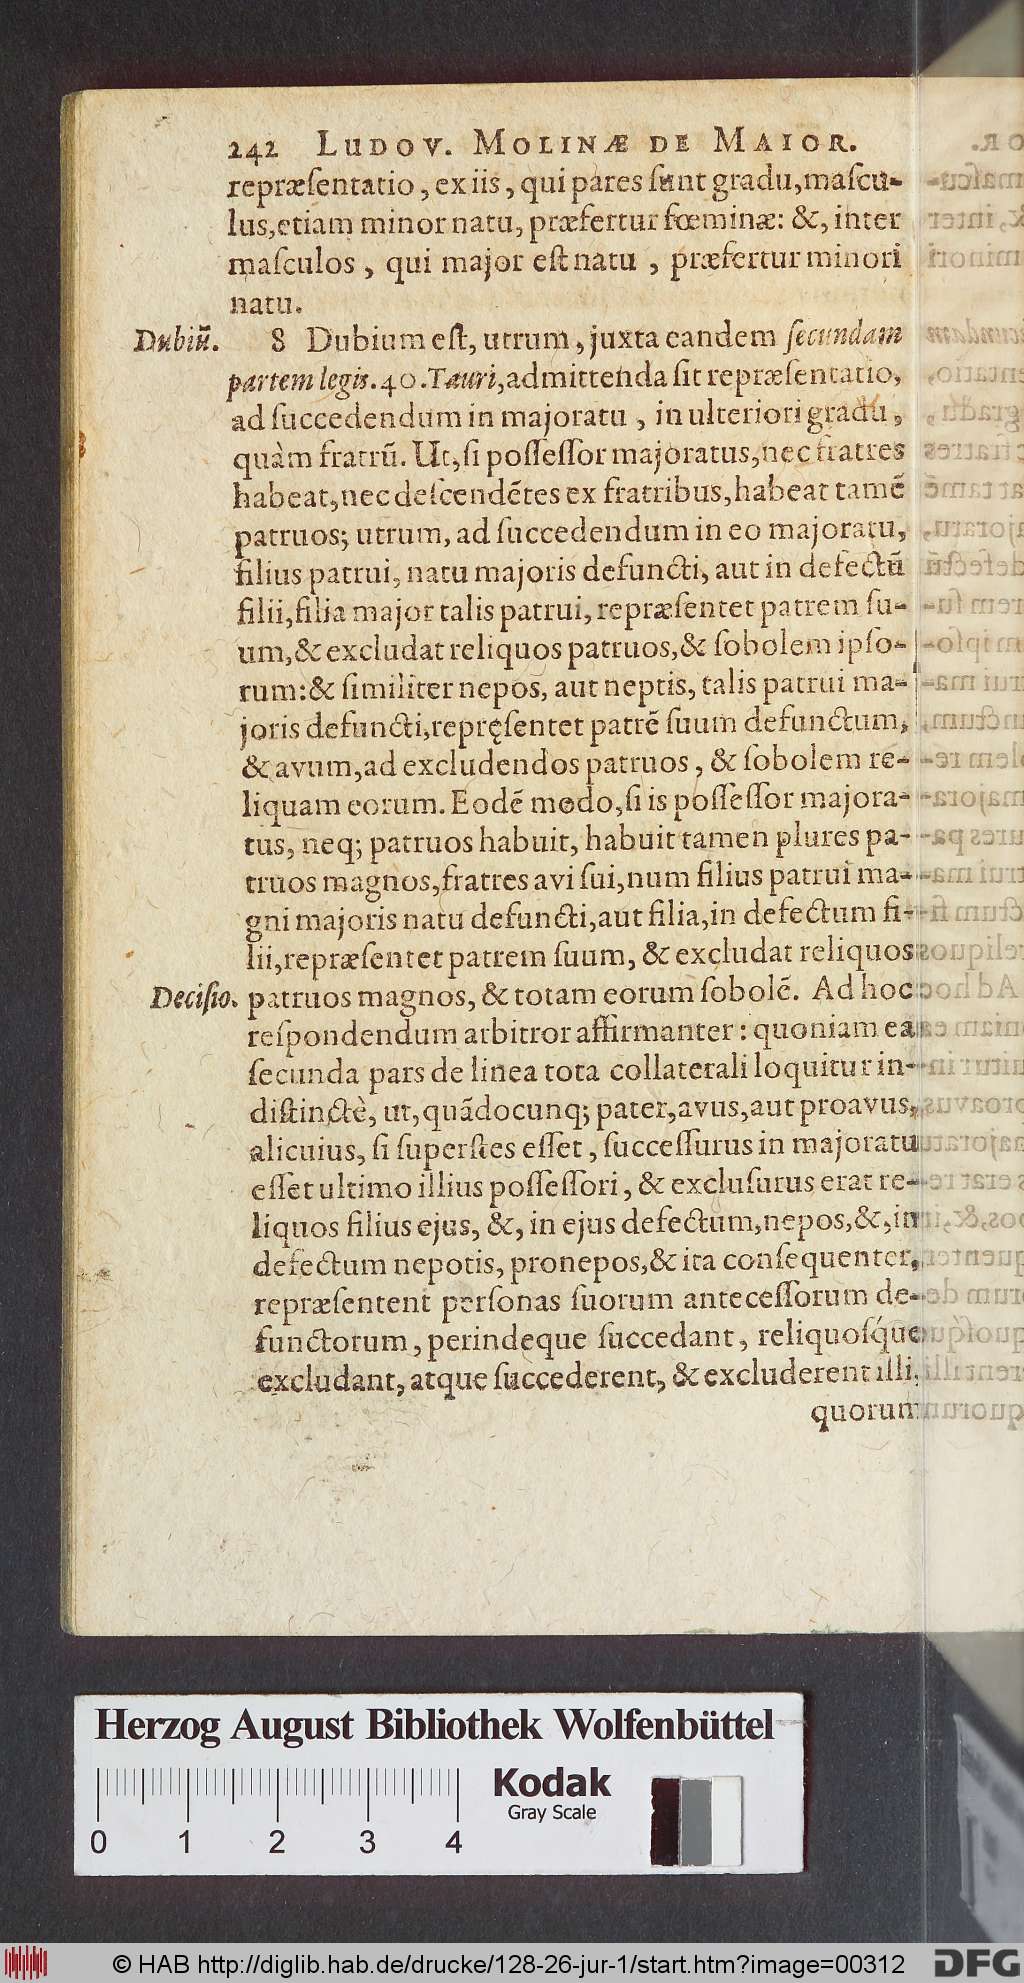 242 LUDOV. MOLINÆ DE MAIOR.
repræſentatio, ex iis, qui pares ſunt gradu, maſcu-
lus, etiam minor natu, præfertur fœminæ: &, inter
maſculos, qui major eſt natu, præfertur minori
natu.
Dubiū. 8 Dubium eſt, utrum, juxta eandem ſecundam
partem legis. 40. Tauri, admittenda ſit repræſentatio,
ad ſuccedendum in majoratu, in ulteriori gradu,
quàm fratrū. Ut, ſi poſſeſſor majoratus, nec fratres
habeat, nec deſcendētes ex fratribus, habeat tamē
patruos; utrum, ad ſuccedendum in eo majoratu,
filius patrui, natu majoris defuncti, aut in defectū
filii, filia major talis patrui, repræſentet patrem ſu-
um, & excludat reliquos patruos, & ſobolem ipſo-
rum: & ſimiliter nepos, aut neptis, talis patrui ma-
joris defuncti, repręſentet patrē ſuum defunctum,
& avum, ad excludendos patruos, & ſobolem re-
liquam eorum. Eodē modo, ſi is poſſeſſor majora-
tus, neq; patruos habuit, habuit tamen plures pa-
truos magnos, fratres avi ſui, num filius patrui ma-
gni majoris natu defuncti, aut filia, in defectum fi-
lii, repræſentet patrem ſuum, & excludat reliquos
Deciſio. patruos magnos, & totam eorum ſobolē. Ad hoc
reſpondendum arbitror affirmanter: quoniam ea
ſecunda pars de linea tota collaterali loquitur in-
diſtinctè, ut, quādocunq; pater, avus, aut proavus,
alicuius, ſi ſuperſtes eſſet, ſucceſſurus in majoratu
eſſet ultimo illius poſſeſſori, & excluſurus erat re-
liquos filius ejus, &, in ejus defectum, nepos, &, in
defectum nepotis, pronepos, & ita conſequenter,
repræſentent perſonas ſuorum anteceſſorum de-
functorum, perindeque ſuccedant, reliquoſq́ue
excludant, atque ſuccederent, & excluderent illi,
quorum
Herzog August Bibliothek Wolfenbüttel
Kodak
Gray Scale
0 1 2 3 4
© HAB http://diglib.hab.de/drucke/128-26-jur-1/start.htm?image=00312
DFG